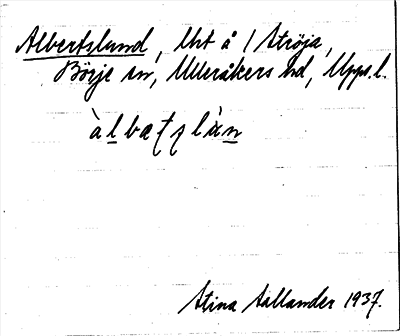 Albertslund, Uht å 1 Ströja,
Börje sn, Ulleråkers hd, Upps.l.
àlbætslùn
Stina Sallander 1937.